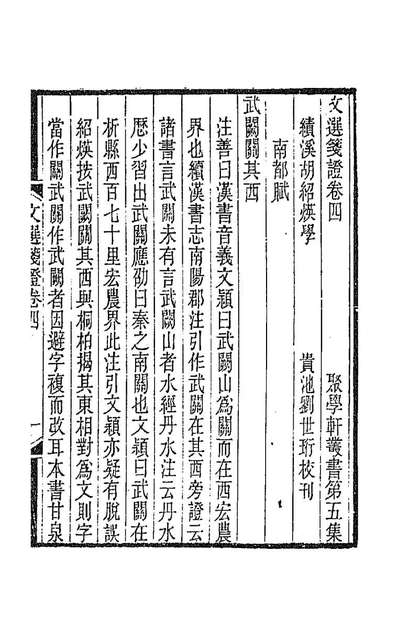 文選箋證卷四
聚學軒叢書第五集
績溪胡紹煐學
貴池劉世珩校刊
南都賦
武闕關其西
注善曰漢書音義文穎曰武闕山爲關而在西宏農
界也續漢書志南陽郡注引作武關在其西旁證云
諸書言武關未有言武闕山者水經丹水注云丹水
歷少習出武關應劭曰秦之南關也文穎曰武關在
析縣西百七十里宏農界此注引文穎亦疑有脫誤
紹煐按武闕關其西與桐柏揭其東相對爲文則字
當作關武關作武闕者因避字複而改耳本書甘泉
文選箋證卷四
一